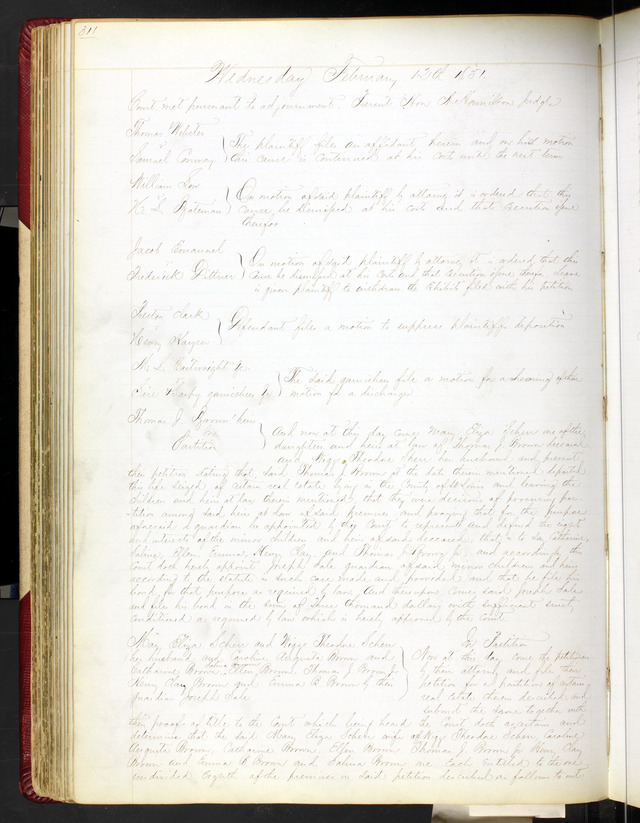 311
Wednesday February 1851
Court met pursuant to adjournment Present Hon Hamilton Judge
Thomas Webster
vs
Samuel Conway
The plaintiff files an affidavit herein and on his motion
this cause is continued at his costs until the next term
William
vs
H. L. Bateman
On motion of said plaintiff by attorney it is ordered that this
cause be dismissed at his costs and that execution issue
therefor
Jacob Emanuel
vs
Frederick Dittner
On motion of said plaintiff by attorney it is ordered that this
cause be dismissed at his costs and that execution issue therefor leave
is given plaintiff to withdraw the exhibit filed with his petition
Clark
vs
Henry Kayser
Defendant files a motion to suppress plaintiffs deposition
Cartwright
vs
garnishees
The said garnishees file a motion for a rehearing of their
motion for a discharge
Thomas J. Brown heirs
Partition
And now at this day come Mary Eliza Scherr one of the
daughters and heirs at law of Thomas J Brown deceased
and Theodore Scherr her husband and present
their petition stating that said Thomas J Brown at the date therein mentioned departed
this life seized of certain real estate lying in the County of St Louis and leaving the
children and heirs at law therein mentioned, that they were desirous of procuring par-
tition among said heirs at law of said premises and praying that for the purpose
aforesaid a guardian be appointed by this Court to represent and defend the rights
and interests of the minor children and heirs of said deceased, that is to say Catharine,
Salina, Ellen, Emma, Henry Clay and Thomas J Brown Jr, and accordingly the
Court doth hereby appoint Joseph Sale guardian of said minor children and heirs
according to the statute in such case made and provided and that he file his
bond for that purpose as required by law And thereupon comes said Joseph Sale
and files his bond in the sum of Three thousand dollars with sufficient surety
conditioned as required by law which is hereby approved by the Court
Mary Eliza Scherr and Theodore Scherr
her husband Caroline Augusta Brown and
Catharine Brown, Ellen Brown Thomas J Brown Jr
Henry Clay Brown and Emma B Brown by their
guardian Joseph Sale
In Partition
Now at this day come the petitioners
by their attorney and file their
petition for partition of certain
real estate therein described and
submit the same together with
their proofs of title to the Court which being heard the Court doth ascertain and
determine that the said Mary Eliza Scherr wife of Theodore Scherr, Caroline
Augusta Brown, Catharine Brown, Ellen Brown Thomas J. Brown Jr Henry Clay
Brown and Emma B Brown and Salina Brown are each entitled to the one
undivided eighth of the premises in said petition described as follows to wit